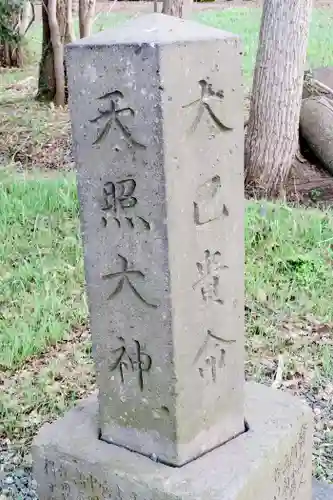 天照大神
大己貴命